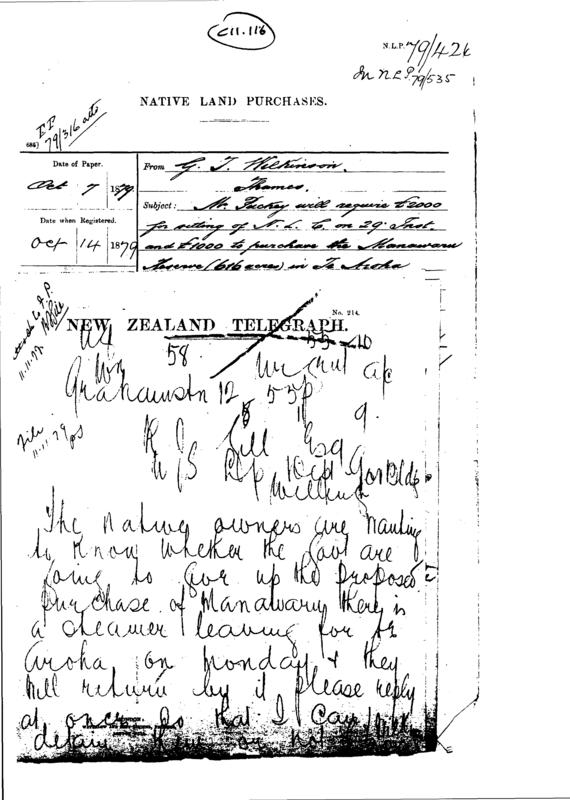 C11.116
N.L.P. 79/426
In N.L.P. 79/535
NATIVE LAND PURCHASES.
79/316
Date of Paper.
Oct 7 1879
From G. T. Wilkinson.
Thames.
Subject: Mr. Puckey will require £2000
for sitting of N. L. C. on 29 Inst
and £1000 to purchase the Manawaru
Reserve (616 acres) in Te Aroha
Date when Registered.
Oct 14 1879
11.11.79
No. 214.
NEW ZEALAND TELEGRAPH.
58
Grahamstn 12 55p
8 11 9.
File
11.11.79
R J Gill Esq
U/S Govt Bldgs
The Native owners are wanting
to know whether the Govt are
going to give up the proposed
purchase of Manawaru there is
a steamer leaving for Te
Aroha on Monday & they
will return by it please reply
at once so that I can
detain them or not